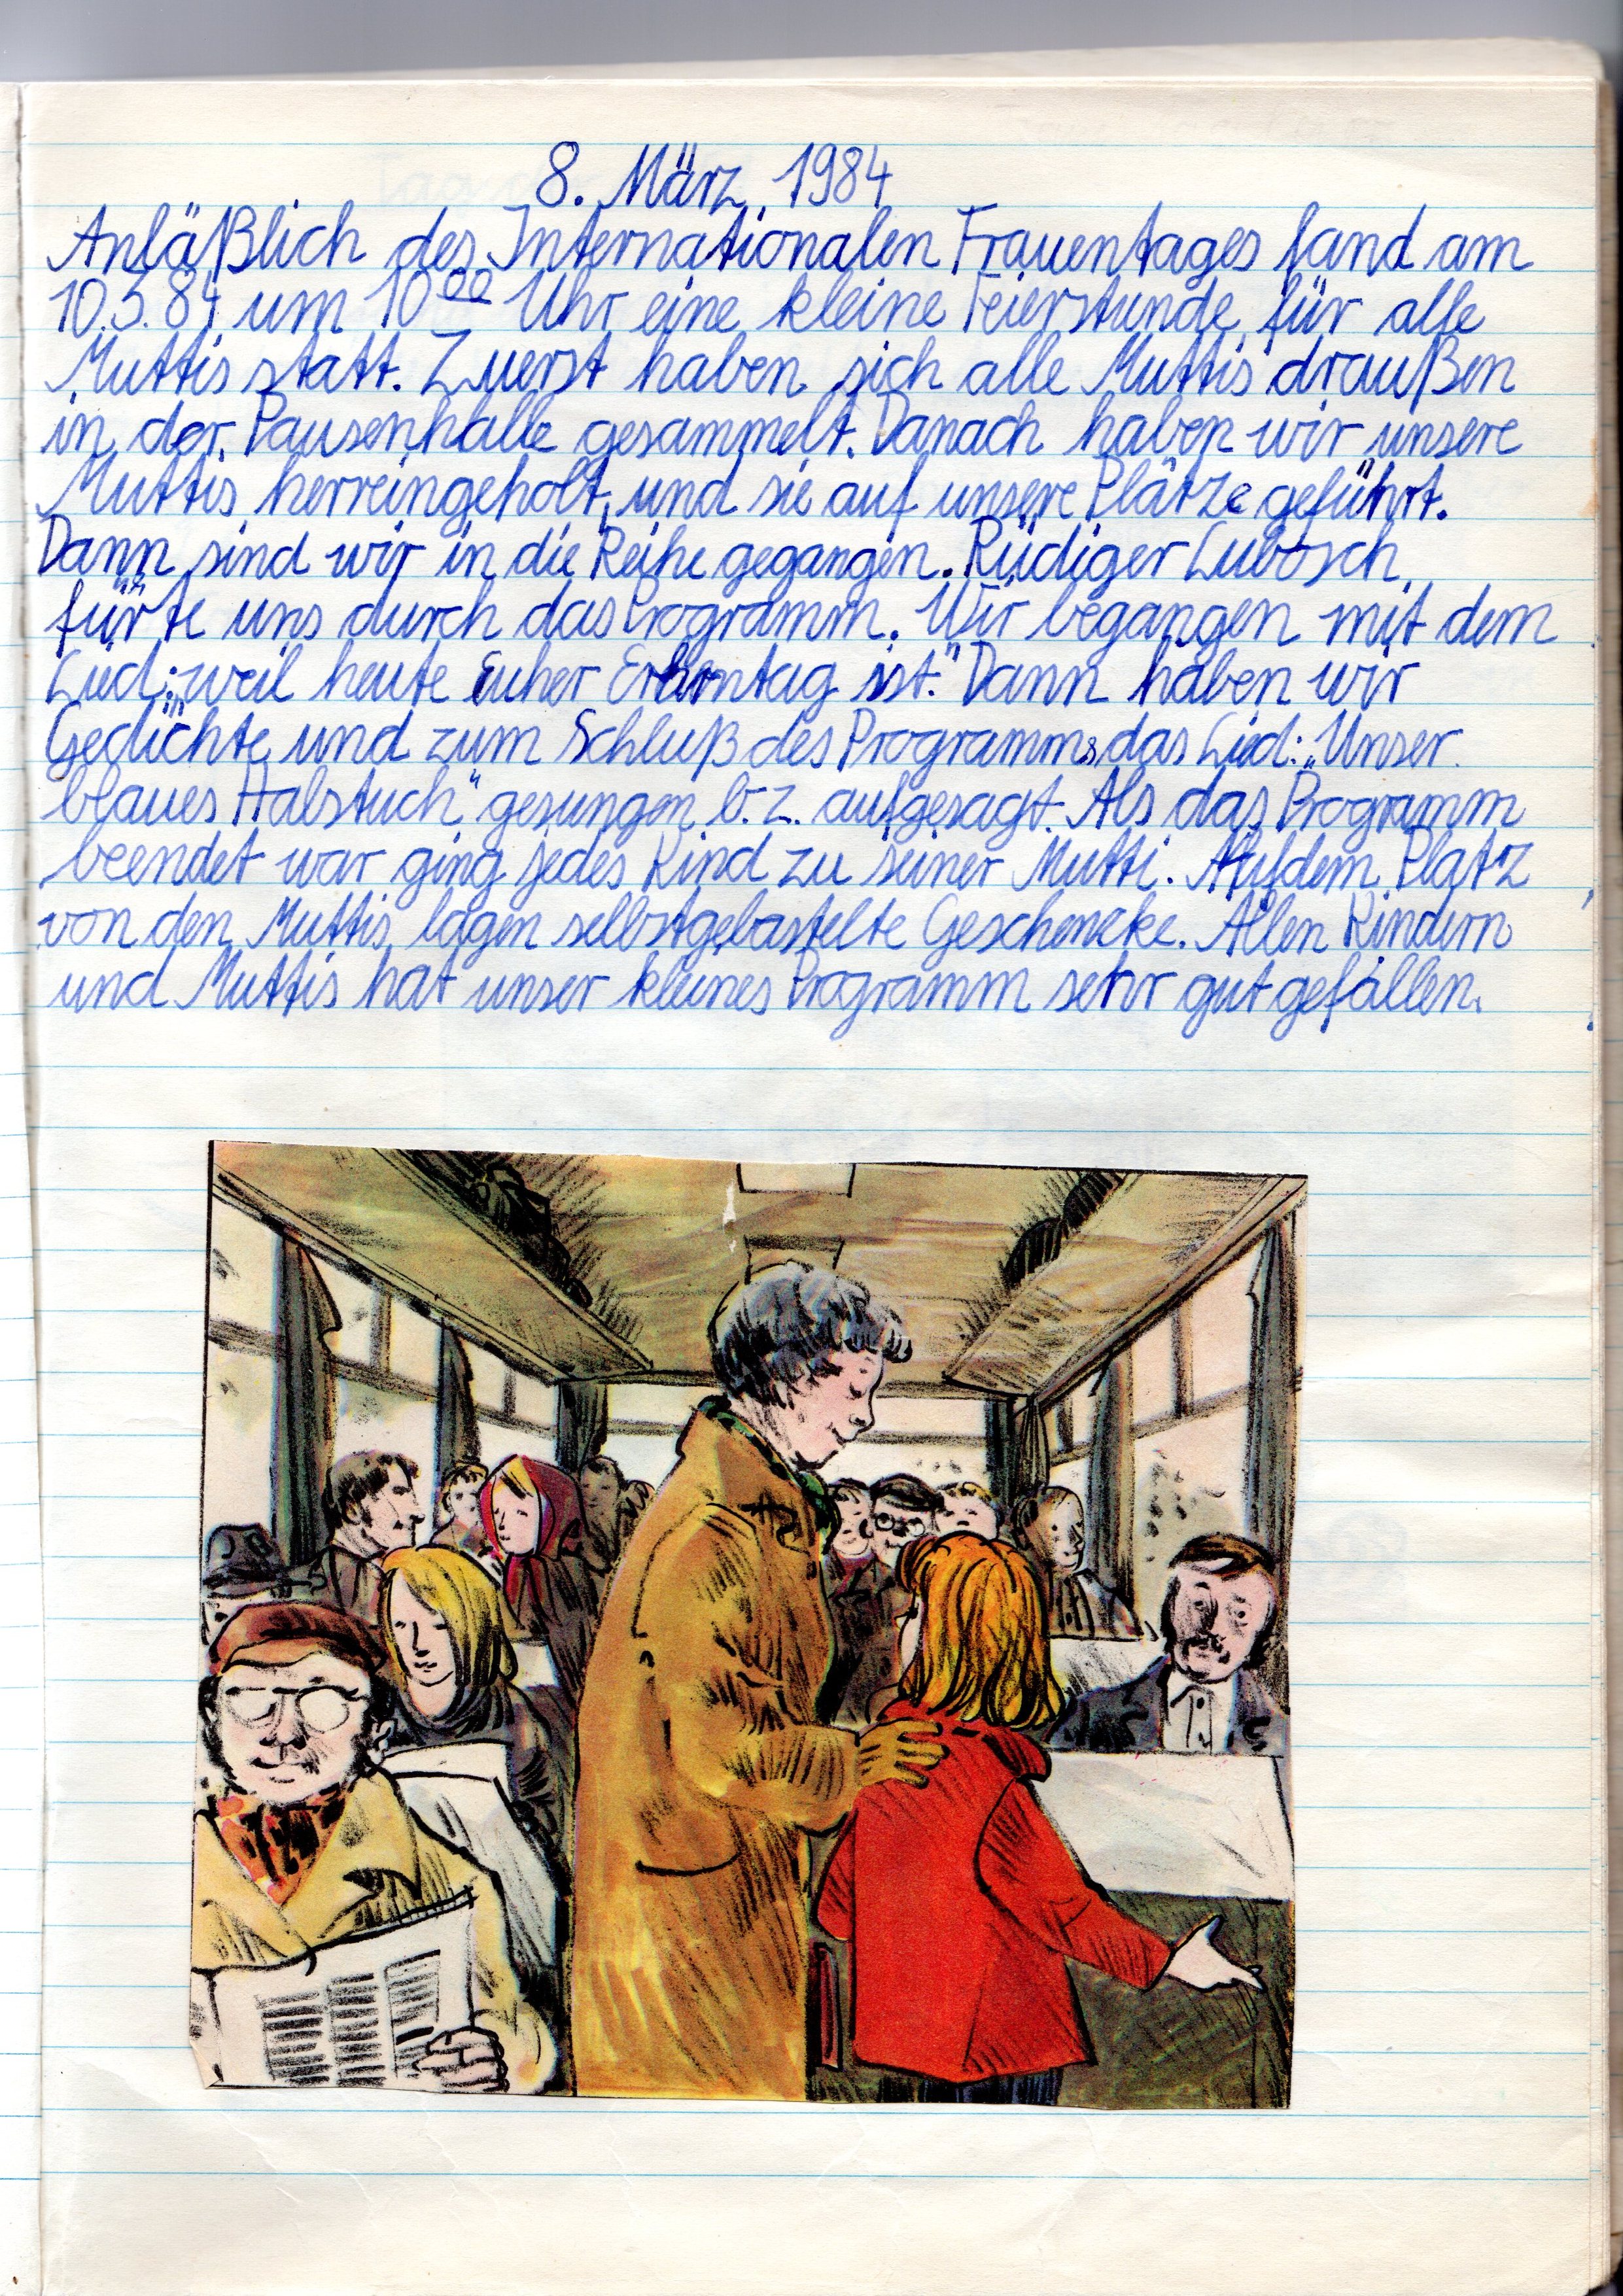 8. März 1984
Anläßlich des Internationalen Frauentages fand am
10.3.84 um 10⁰⁰ Uhr eine kleine Feierstunde für alle
Muttis statt. Zuerst haben sich alle Muttis draußen
in der Pausenhalle gesammelt. Danach haben wir unsere
Muttis herreingeholt, und sie auf unsere Plätze geführt.
Dann sind wir in die Reihe gegangen. Rüdiger Lubosch
fürte uns durch das Programm. Wir begangen mit dem
Lied: „weil heute Euher Ehrentag ist." Dann haben wir
Gedichte und zum Schluß des Programms das Lied: „Unser
blaues Halstuch" gesungen b.z. aufgesagt. Als das Programm
beendet war ging jedes Kind zu seiner Mutti. Auf dem Platz
von den Muttis lagen selbstgebastelte Geschencke. Allen Kindern
und Muttis hat unser kleines Programm sehr gut gefallen.